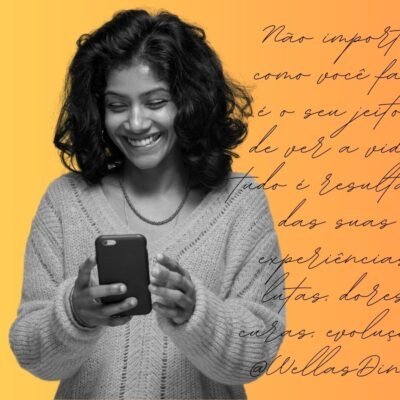 Não import
como você fa
é o seu jeito
de ver a vid
tudo é result
das suas
experiências
lutas, dores
curas, evoluç
@WellasDin